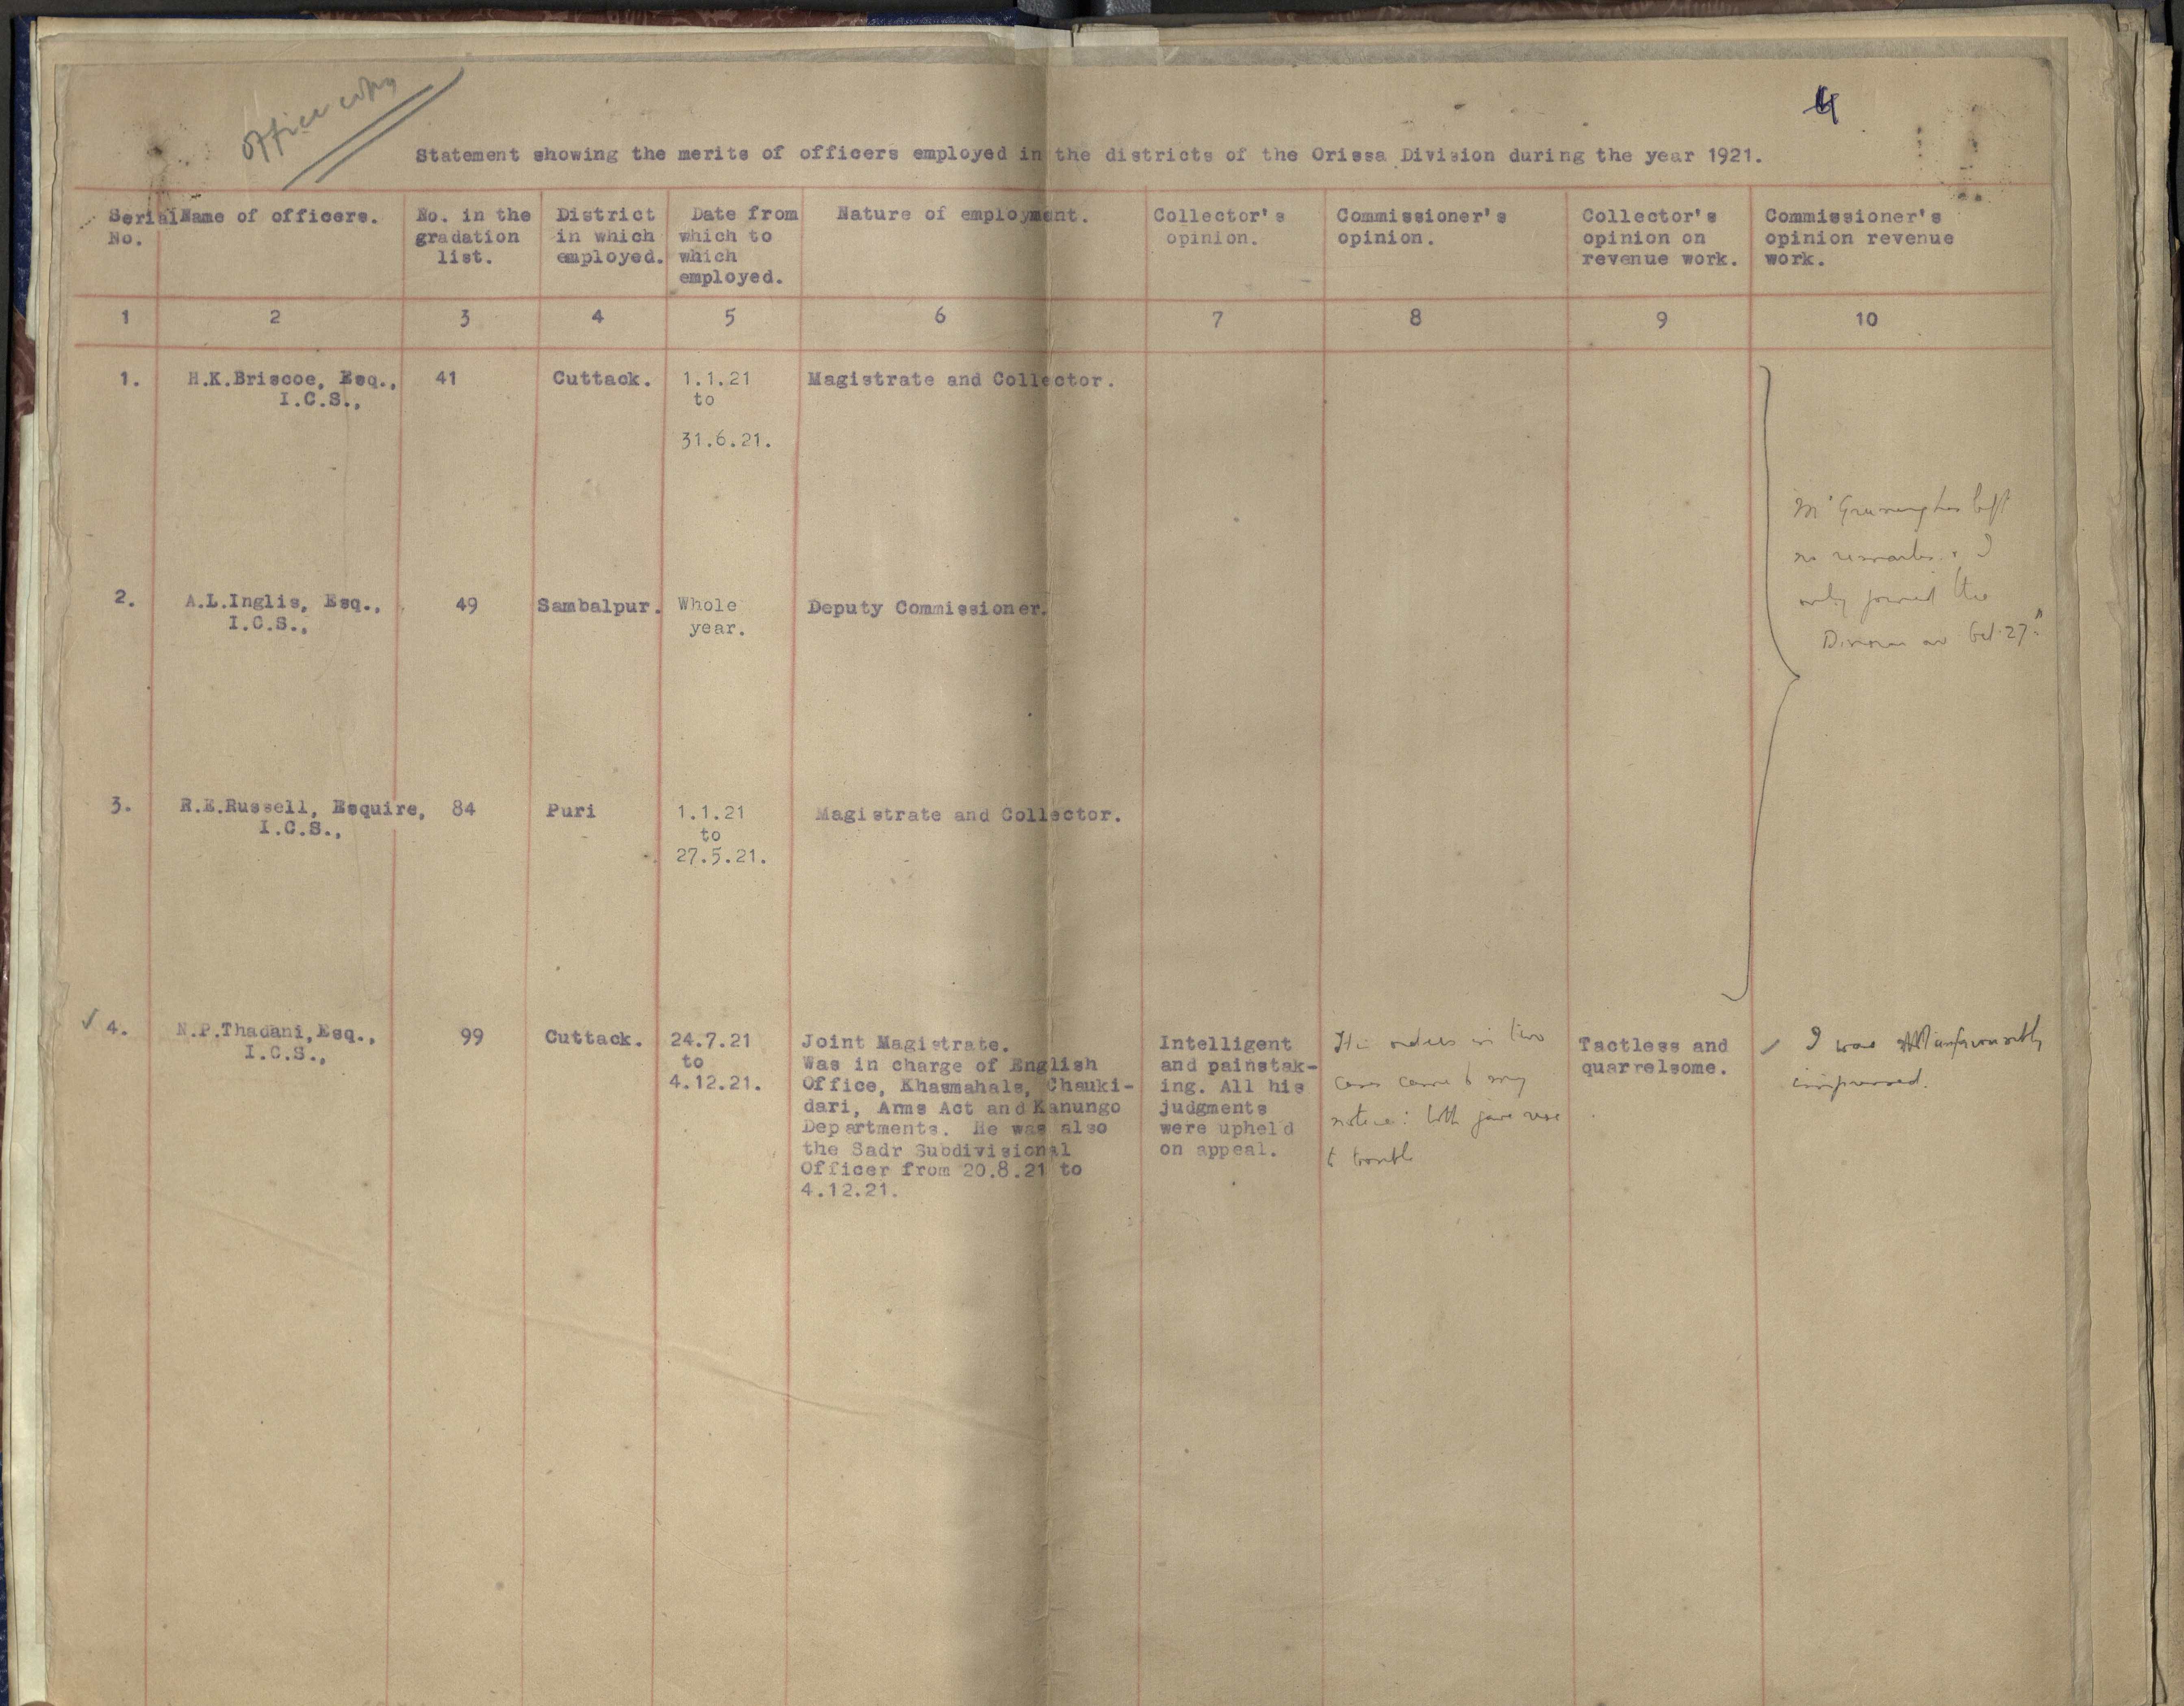 Office copy
4
Statement showing the merits of officers employed in the districts of the Orissa Division during the year 1921.
Serial No.
Name of officers.
No. in the
gradation
list.
District
in which
employed.
Date from
which to
which
employed.
Nature of employment.
Collector's
opinion.
Commissioner's
opinion.
Collector's
opinion on
revenue work.
Commissioner's
opinion revenue
work.
1 2 3 4 5 6 7 8 9 10
1.
H.K.Briscoe, Esq.,
I.C.S.,
41
Cuttack.
1.1.21
to
31.6.21.
Magistrate and Collector.
2.
A.L.Inglis, Esq.,
I.C.S.,
49
Sambalpur.
Whole
year.
Deputy Commissioner.
3.
R.E.Russell, Esquire,
I.C.S.,
84
Puri
1.1.21
to
27.5.21.
Magistrate and Collector.
Mr Gruning has left
no remarks & I
only joined the
Division on Oct. 27th
✓ 4.
N.P.Thadani,Esq.,
I.C.S.,
99
Cuttack.
24.7.21
to
4.12.21.
Joint Magistrate.
Was in charge of English
Office, Khasmahals, Chauki-
dari, Arms Act and Kanungo
Departments. He was also
the Sadr Subdivisional
Officer from 20.8.21 to
4.12.21.
Intelligent
and painstak-
ing. All his
judgments
were upheld
on appeal.
His orders in two
cases came to my
notice: both gave rise
to trouble
Tactless and
quarrelsome.
✓ I was unfavourably
impressed.